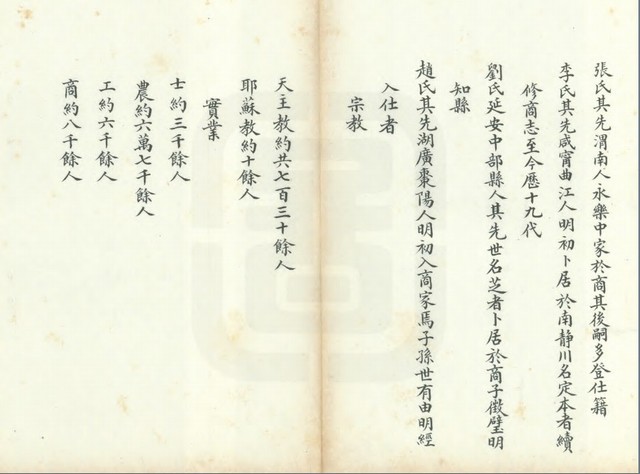 張氏其先渭南人永樂中家於商其後嗣多登仕籍
李氏其先咸甯曲江人明初卜居於南靜川名定本者續
修商志至今歷十九代
劉氏延安中部縣人其先世名芝者卜居於商子徵璧明
知縣
趙氏其先湖廣棗陽人明初入商家焉子孫世有由明經
入仕者
宗教
天主教約共七百三十餘人
耶蘇教約十餘人
實業
士約三千餘人
農約六萬七千餘人
工約六千餘人
商約八千餘人